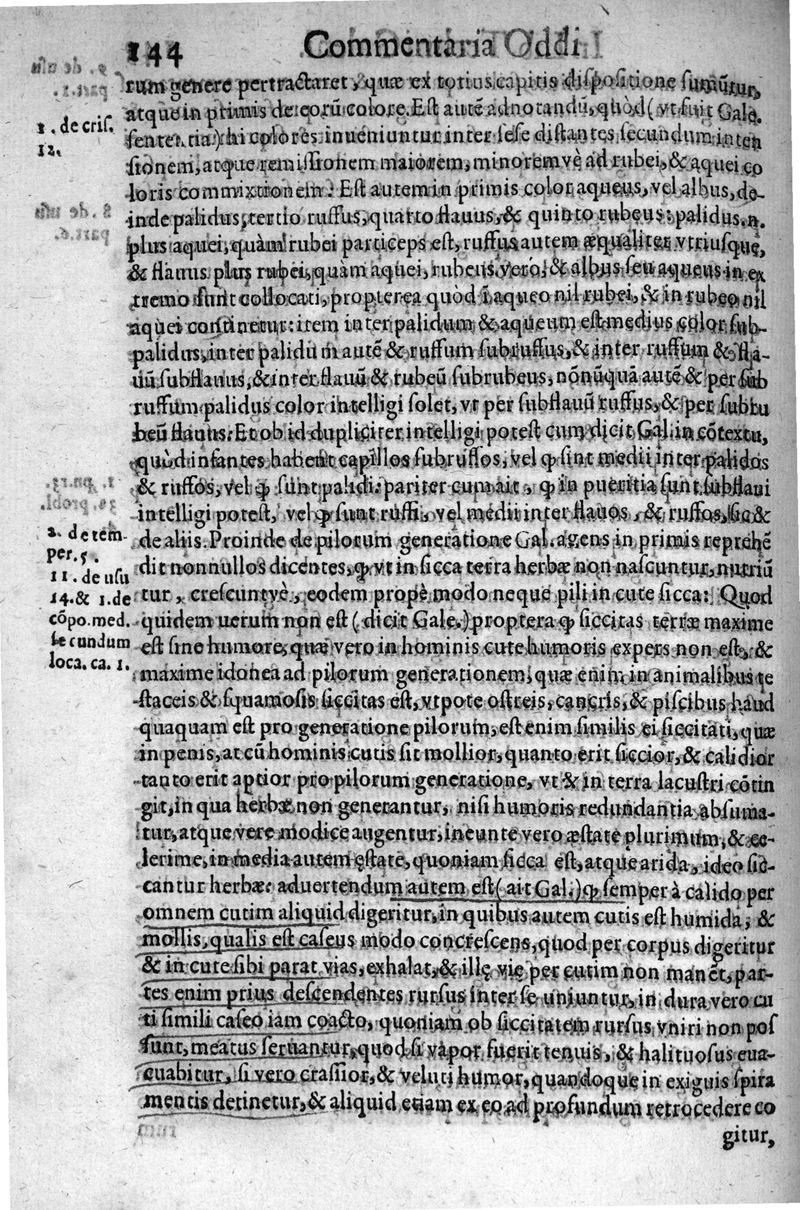 144 Commentaria Oddi
rum genere pertractaret, quæ ex totius capitis dispositione sumũtur,
atque in primis de eorũ colore. Est autẽ adnotandũ, quòd (vt fuit Gale.
sententia) hi colores inueniuntur inter sese distantes secundum inten
sionem, atque remissionem maiorem, minoremvè ad rubei, & aquei co
loris commixtionem: Est autem in primis color aqueus, vel albus, de-
inde palidus, tertio ruffus, quarto flauus, & quinto rubeus: palidus .n.
plus aquei, quàm rubei particeps est, ruffus autem æqualiter vtriusque,
& flauus plus rubei, quàm aquei, rubeus verò, & albus seu aqueus in ex
tremo sunt collocati, propterea quòd ĩ aqueo nil rubei, & in rubeo nil
aquei continetur: item inter palidum & aqueum est medius color sub-
palidus, inter palidum autẽ & ruffum subruffus, & inter ruffum & fla-
uũ subflauus, & inter flauũ & rubeũ subrubeus, nõnũquã autẽ & per sub
ruffum palidus color intelligi solet, vt per subflauũ ruffus, & per subru
beũ flauus. Et ob id dupliciter intelligi potest cum dicit Gal. in cõtextu,
quòd infantes habent capillos subruffos, vel ꝙ sint medii inter palidos
& ruffos, vel ꝙ sunt palidi. pariter cum ait, ꝙ in pueritia sunt subflaui
intelligi potest, vel ꝙ sunt ruffi, vel medii inter flauos, & ruffos, sic &
de aliis. Proinde de pilorum generatione Gal. agens in primis reprehẽ
dit nonnullos dicentes, ꝙ vt in sicca terra herbæ non nascuntur, nutriũ
tur, crescuntvè, eodem propè modo neque pili in cute sicca: Quod
quidem uerum non est (dicit Gale.) proptera ꝙ siccitas terræ maxime
est sine humore, quæ vero in hominis cute humoris expers non est, &
maxime idonea ad pilorum generationem, quæ enim in animalibus te
staceis & squamosis siccitas est, vtpote ostreis, cancris, & piscibus haud
quaquam est pro generatione pilorum, est enim similis ei siccitati, quæ
in penis, at cũ hominis cutis sit mollior, quanto erit siccior, & calidior
tanto erit aptior pro pilorum generatione, vt & in terra lacustri cõtin
git, in qua herbæ non generantur, nisi humoris redundantia absuma-
tur, atque vere modice augentur, ineunte vero æstate plurimum, & ce-
lerime, in media autem ęstate, quoniam sicca est, atque arida, ideo sic-
cantur herbæ: aduertendum autem est (ait Gal.) ꝙ semper à calido per
omnem cutim aliquid digeritur, in quibus autem cutis est humida, &
mollis, qualis est caseus modo concrescens, quod per corpus digeritur
& in cute sibi parat vias, exhalat, & illę vię per cutim non manẽt, par-
tes enim prius descendentes rursus inter se uniuntur, in dura vero cu
ti simili caseo iam coacto, quoniam ob siccitatem rursus vniri non pos
sunt, meatus seruantur, quod si vapor fuerit tenuis, & halituosus eua-
cuabitur, si vero crassior, & veluti humor, quandoque in exiguis spira
mentis detinetur, & aliquid etiam ex eo ad profundum retrocedere co
gitur,
1. de cris.
12.
2. de tem-
per. 5.
11. de usu
14. & 1. de
cõpo. med.
secundum
loca. ca. 1.